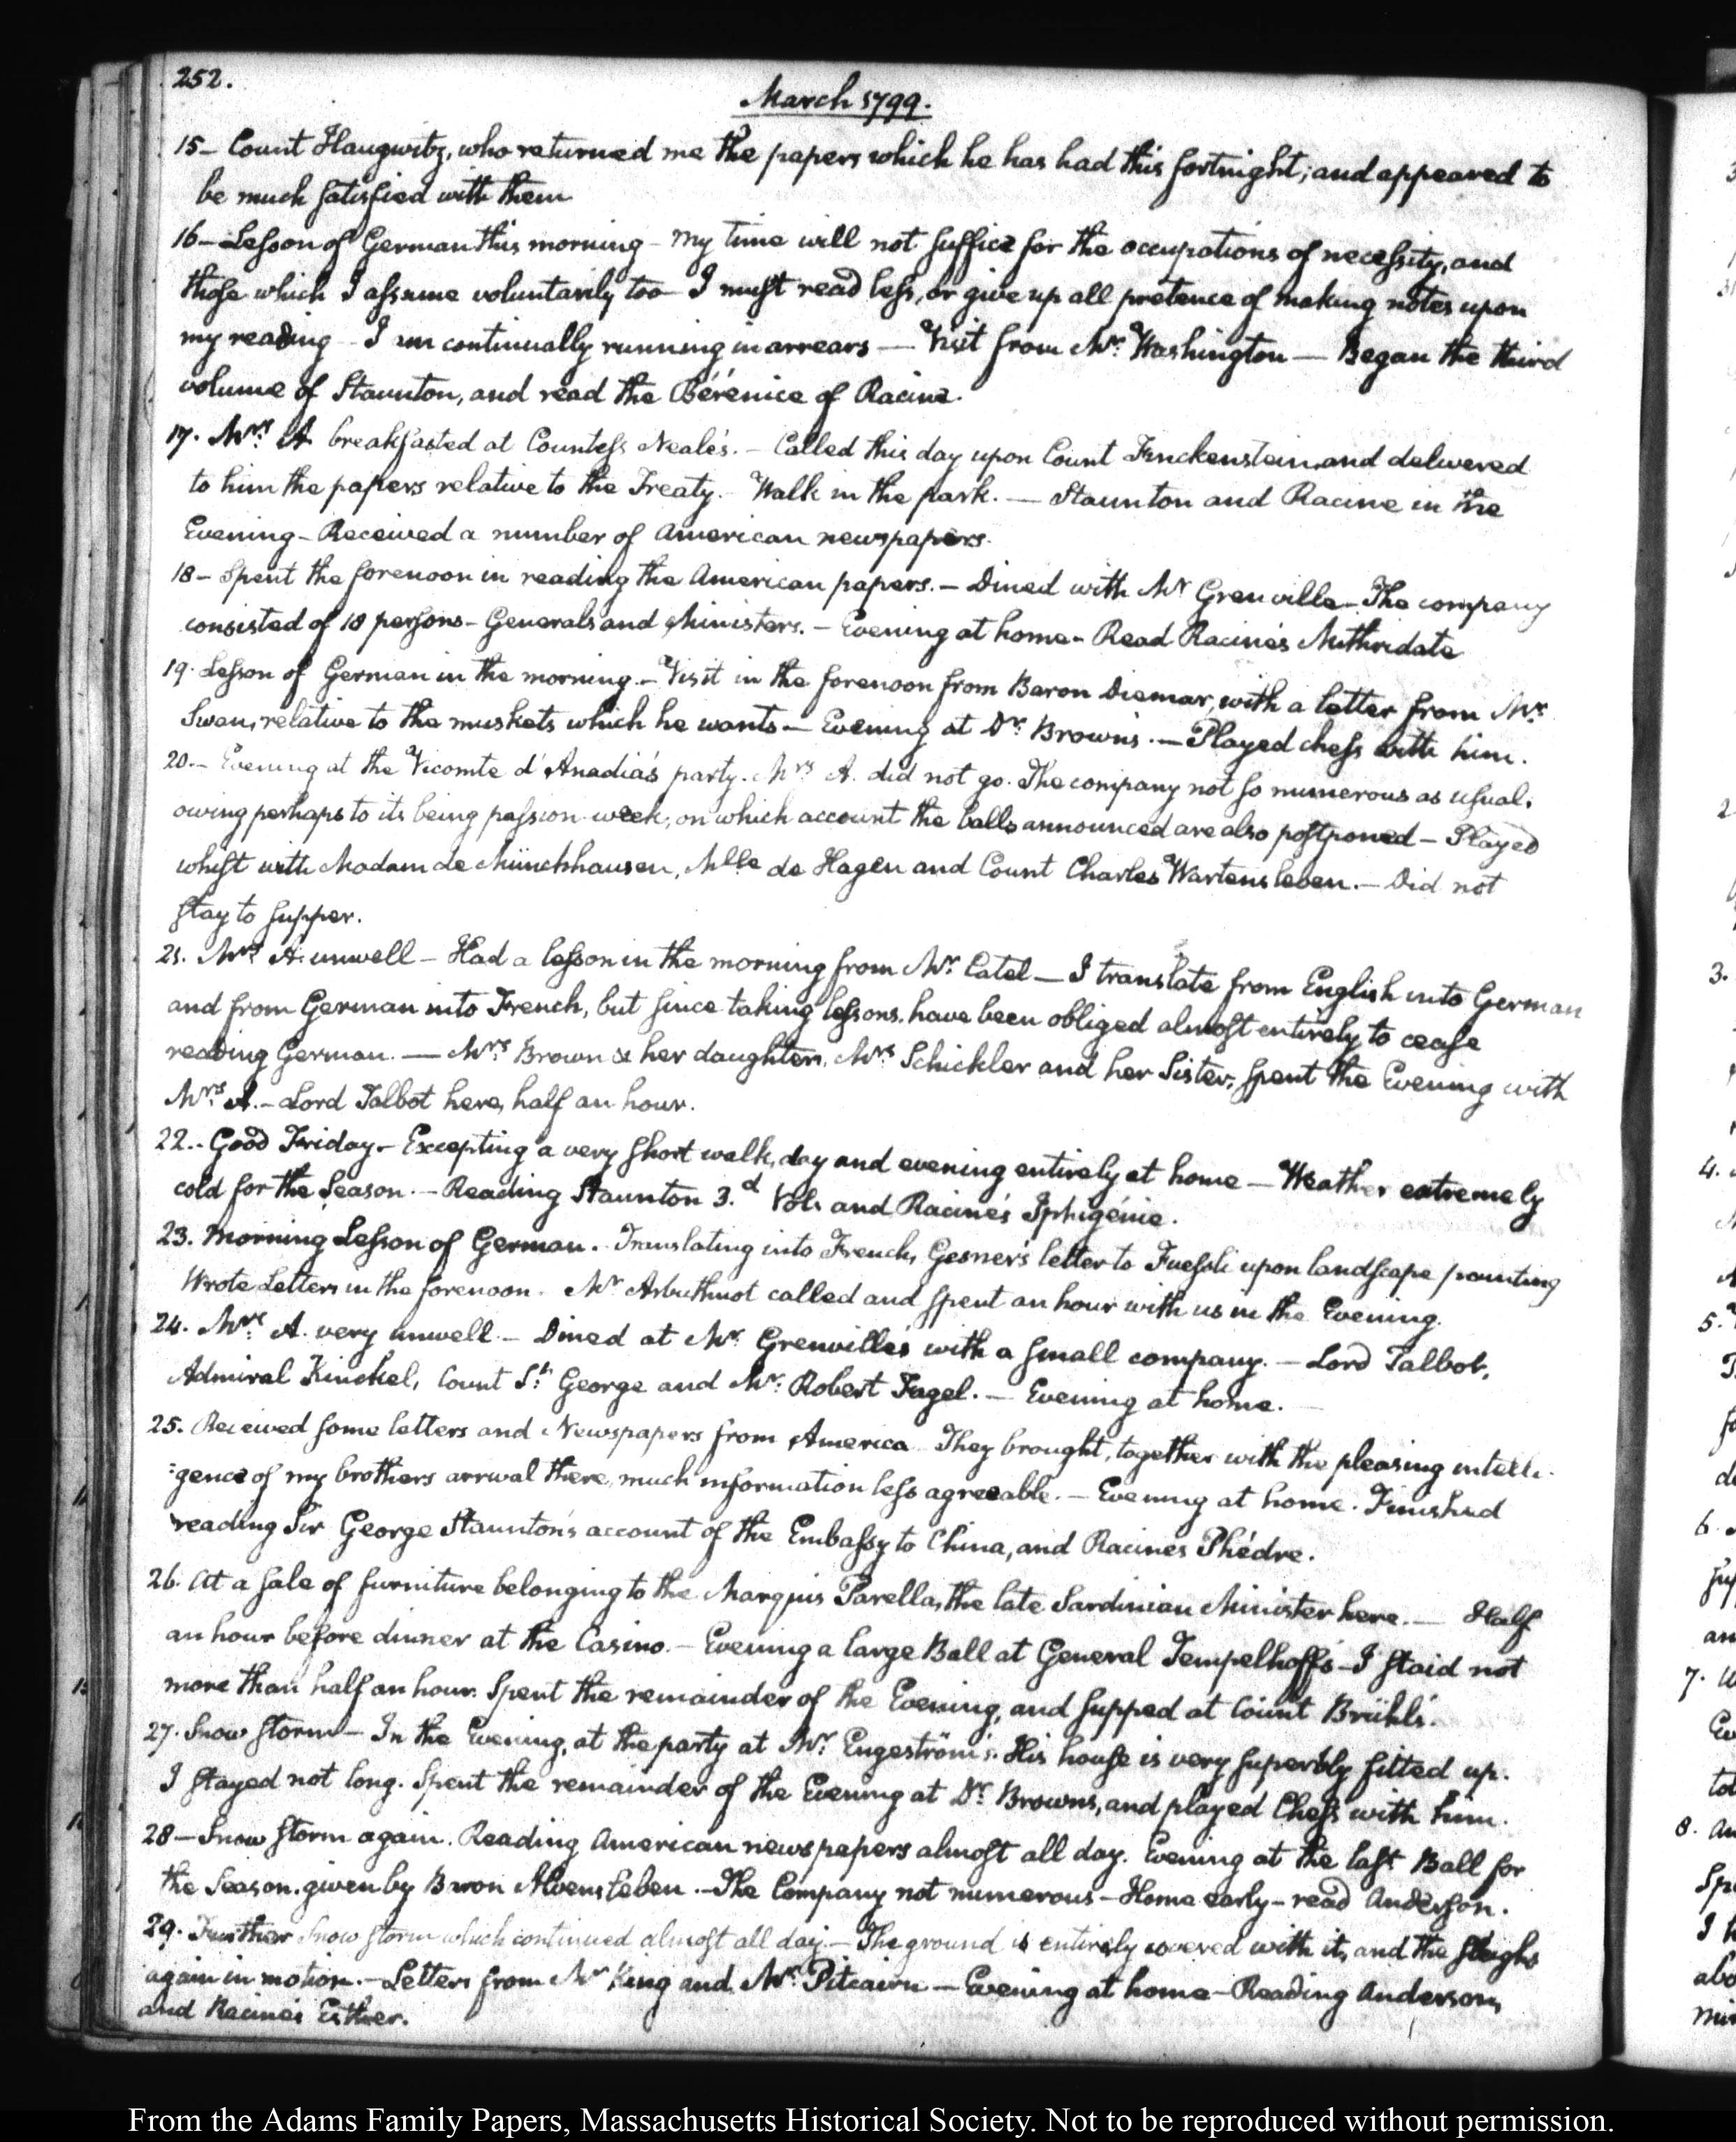 252.
March 1799.
15– Count Haugwitz, who returned me the papers which he has had this fortnight; and appeared to
be much satisfied with them
16– Lesson of German this morning – My time will not suffice for the occupations of necessity, and
those which I assume voluntarily too – I must read less, or give up all pretence of making notes upon
my reading – I am continually running in arrears — Visit from Mr. Washington — Began the third
volume of Staunton, and read the Bérénice of Racine.
17. Mrs. A breakfasted at Countess Neale's. – Called this day upon Count Finckenstein and delivered
to him the papers relative to the Treaty. – Walk in the park. — Staunton and Racine in the
Evening – Received a number of American newspapers.
18– Spent the forenoon in reading the American papers. – Dined with Mr Grenville – The company
consisted of 18 persons – Generals and Ministers. – Evening at home – Read Racine's Mithridate
19. Lesson of German in the morning. – Visit in the forenoon from Baron Diemar, with a letter from Mr.
Swan, relative to the muskets which he wants – Evening at Dr. Brown's. — Played chess with him.
20.– Evening at the Vicomte d'Anadia's party. Mrs A. did not go. The company not so numerous as usual.
owing perhaps to its being passion-week; on which account the balls announced are also postponed – Played
whist with Madam de Münchhausen, Mlle de Hagen and Count Charles Wartensleben. – Did not
stay to supper.
21. Mrs. A. unwell – Had a lesson in the morning from Mr. Catel — I translate from English into German
and from German into French, but since taking lessons, have been obliged almost entirely to cease
reading German. — Mrs. Brown & her daughters, Mrs. Schickler and her Sister, spent the Evening with
Mrs. A. – Lord Talbot here, half an hour.
22.– Good Friday – Excepting a very short walk, day and evening entirely at home — Weather extremely
cold for the Season. – Reading Staunton 3.d Vol. and Racine's Iphigénie.
23. Morning Lesson of German. Translating into French, Gesner's letter to Fuessli upon landscape painting
Wrote Letters in the forenoon. Mr Arbuthnot called and spent an hour with us in the Evening.
24. Mrs. A. very unwell – Dined at Mr. Grenville's with a small company. – Lord Talbot,
Admiral Kinckel, Count St. George and Mr. Robert Fagel. — Evening at home.
25. Received some letters and Newspapers from America They brought, together with the pleasing intelli-
:gence of my brothers arrival there, much information less agreeable. – Evening at home. Finished
reading Sir George Staunton's account of the Embassy to China, and Racines Phédre.
26. At a sale of furniture belonging to the Marquis Parella, the late Sardinian Minister here. — Half
an hour before dinner at the Casino. – Evening a large Ball at General Tempelhoff's – I staid not
more than half an hour. Spent the remainder of the Evening, and supped at Count Brühl's.
27. Snow storm – In the Evening, at the party at Mr. Engeström's. His house is very superbly fitted up.
I stayed not long. Spent the remainder of the Evening at Dr. Browns, and played Chess with him.
28 – Snow storm again. Reading American newspapers almost all day. Evening at the last Ball for
the Season. given by Baron Alvensleben. – The Company not numerous – Home early – read Anderson.
29. Further Snow storm which continued almost all day. – The ground is entirely covered with it, and the sleighs
again in motion. – Letters from Mr King and Mr. Pitcairn – Evening at home – Reading Anderson,
and Racine's Esther.
From the Adams Family Papers, Massachusetts Historical Society. Not to be reproduced without permission.